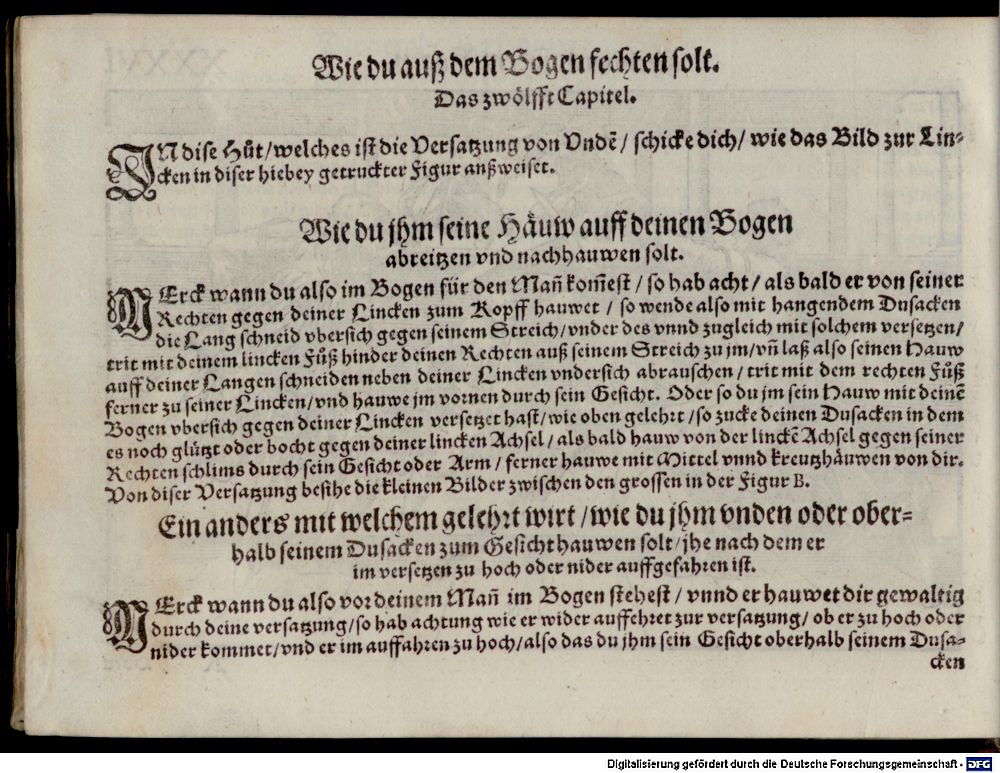 Wie du auß dem Bogen fechten solt.
Das zwölfft Capitel.
IN dise Hůt/welches ist die Versatzung von Vndẽ/ schicke dich/ wie das Bild zur Lin-
cken in diser hiebey getruckter Figur anßweiset.
Wie du jhm seine Häuw auff deinen Bogen
abreitzen vnd nachhauwen solt.
MErck wann du also im Bogen für den Mañ kom̃est/ so hab acht/ als bald er von seiner
Rechten gegen deiner Lincken zum Kopff hauwet/ so wende also mit hangendem Dusacken
die Lang schneid vbersich gegen seinem Streich/vnder des vnnd zugleich mit solchem versetzen/
trit mit deinem lincken Fůß hinder deinen Rechten auß seinem Streich zu jm/vñ laß also seinen Hauw
auff deiner Langen schneiden neben deiner Lincken vndersich abrauschen/ trit mit dem rechten Fůß
ferner zu seiner Lincken/vnd hauwe jm vornen durch sein Gesicht. Oder so du jm sein Hauw mit deinẽ
Bogen vbersich gegen deiner Lincken versetzet hast/wie oben gelehrt/so zucke deinen Dusacken in dem
es noch glützt oder bocht gegen deiner lincken Achsel/als bald hauw von der linckẽ Achsel gegen seiner
Rechten schlims durch sein Gesicht oder Arm/ ferner hauwe mit Mittel vnnd kreutzhäuwen von dir.
Von diser Versatzung besihe die kleinen Bilder zwischen den grossen in der Figur B.
Ein anders mit welchem gelehrt wirt/wie du jhm vnden oder ober-
halb seinem Dusacken zum Gesicht hauwen solt/jhe nach dem er
im versetzen zu hoch oder nider auffgefahren ist.
MErck wann du also vor deinem Mañ im Bogen stehest/ vnnd er hauwet dir gewaltig
durch deine versatzung/so hab achtung wie er wider auffehret zur versatzung/ ob er zu hoch oder
nider kommet/vnd er im auffahren zu hoch/also das du jhm sein Gesicht oberhalb seinem Dusa-
cken
Digitalisierung gefördert durch die Deutsche Forschungsgemeinschaft - DFG